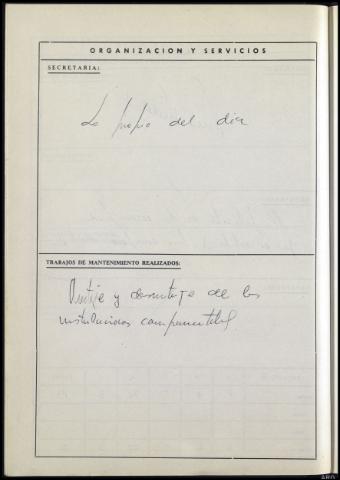 ORGANIZACION Y SERVICIOS
SECRETARIA:
Lo propio del día
TRABAJOS DE MANTENIMIENTO REALIZADOS:
Montaje y desmontaje de las
instalaciones campamentales